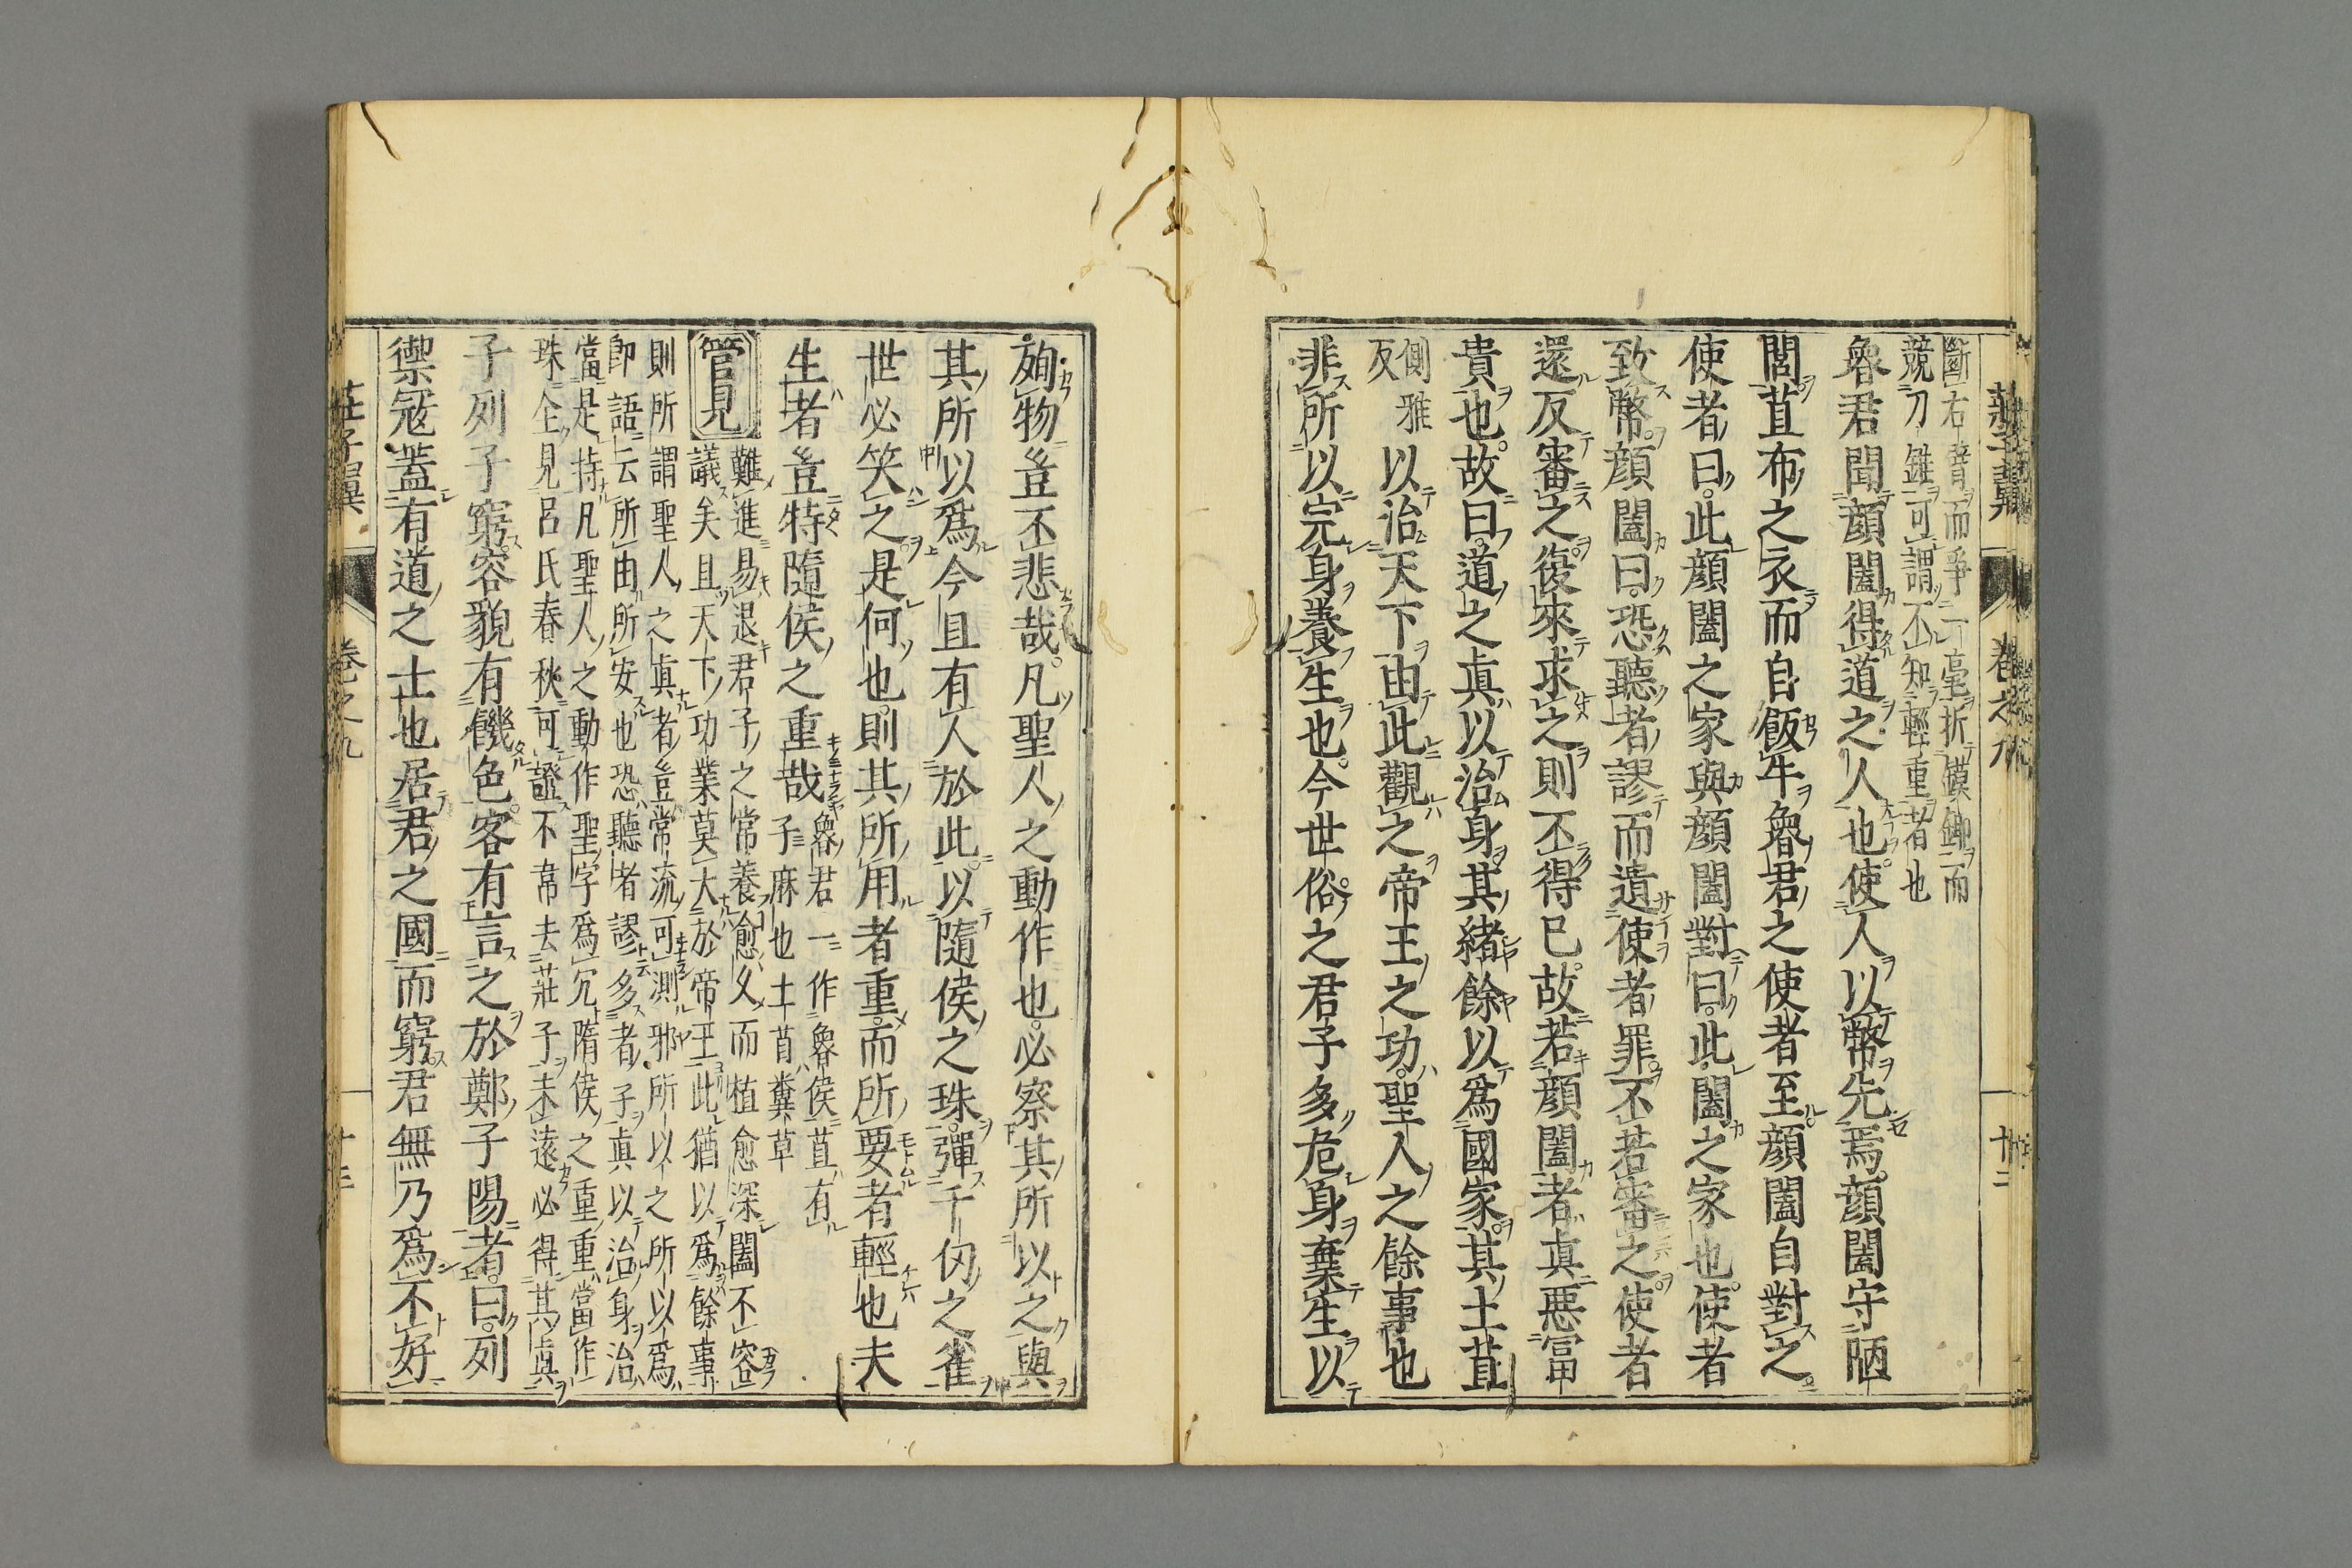 莊子翼 卷之九 十二
斷右臂而爭一毫折鏌鋣而
競刀錐可謂不知輕重者也
魯君聞顔闔得道之人也使人以幣先焉顔闔守陋
閭苴布之衣而自飯牛魯君之使者至顔闔自對之
使者曰此顔闔之家與顔闔對曰此闔之家也使者
致幣顔闔曰恐聽者謬而遺使者罪不若審之使者
還反審之復來求之則不得已故若顔闔者真惡富
貴也故曰道之眞以治身其緒餘以爲國家其土苴
側雅反以治天下由此觀之帝王之功聖人之餘事也
非所以完身養生也今世俗之君子多危身棄生以
殉物豈不悲哉凡聖人之動作也必察其所以之與
其所以爲今且有人於此以隨侯之珠彈千仞之雀
世必笑之是何也則其所用者重而所要者輕也夫
生者豈特隨侯之重哉魯君一作魯侯苴有
子麻也土苴糞草
管見難進易退君子之常養愈久而植愈深闔不容
議矣且天下功業莫大於帝王此猶以爲餘事
則所謂聖人之眞者豈常流可測邪所以之所以爲
卽語云所由所安也恐聽者謬多者子眞以治身治
當是持凡聖人之動作聖字爲冗隋侯之重重當作
珠全見呂氏春秋可證不韋去莊子未遠必得其眞
子列子窮容貌有饑色客有言之於鄭子陽者曰列
禦寇蓋有道之士也居君之國而窮君無乃爲不好
莊子翼 卷之九 十二